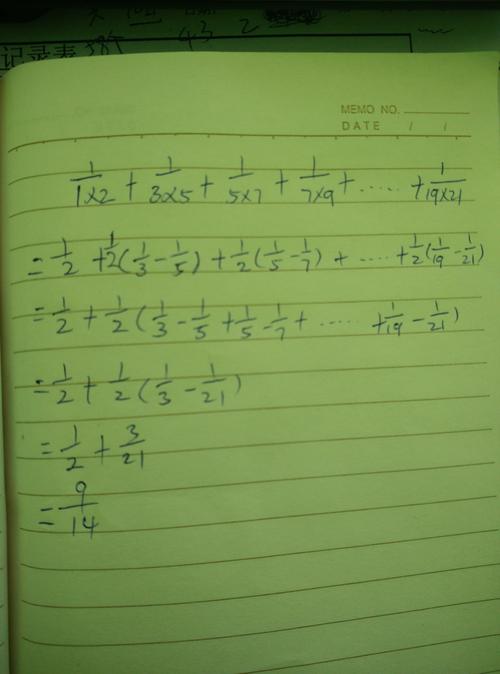 记录表
43 2
MEMO NO.
DATE / /
1/1×2 + 1/3×5 + 1/5×7 + 1/7×9 + ····· + 1/19×21
= 1/2 + 1/2(1/3 - 1/5) + 1/2(1/5 - 1/7) + ····· + 1/2(1/19 - 1/21)
= 1/2 + 1/2(1/3 - 1/5 + 1/5 - 1/7 + ····· + 1/19 - 1/21)
= 1/2 + 1/2(1/3 - 1/21)
= 1/2 + 3/21
= 9/14